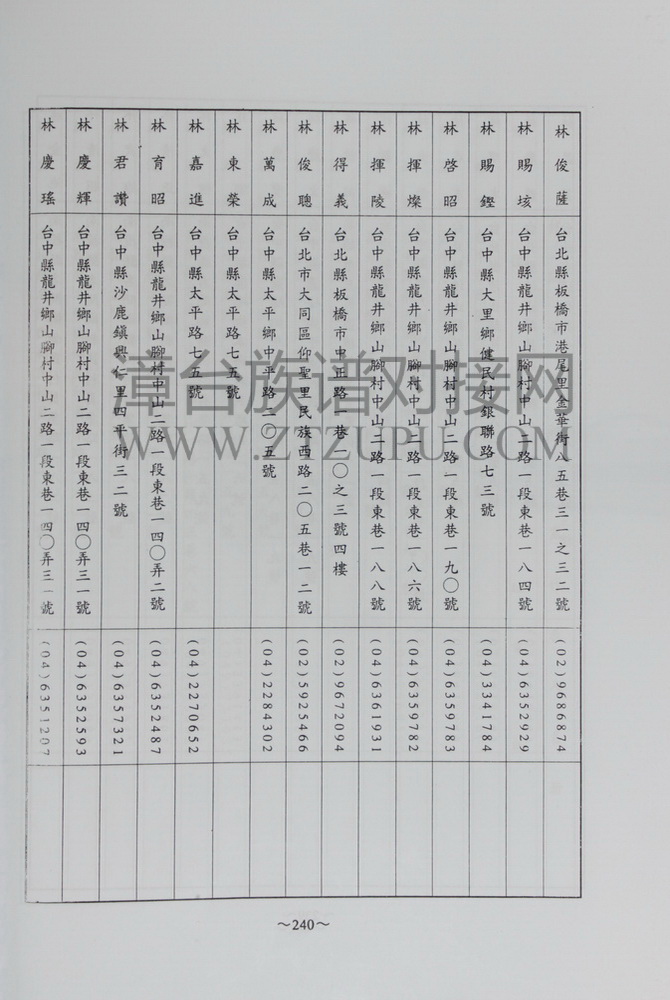 林俊薩 台北縣板橋市港尾里金華街八五巷三一之三二號 (02)9686874
林賜垓 台中縣龍井鄉山腳村中山二路一段東巷一八四號 (04)6352929
林賜鏗 台中縣大里鄉健民村銀聯路七三號 (04)3341784
林啓昭 台中縣龍井鄉山腳村中山二路一段東巷一九〇號 (04)6359783
林揮燦 台中縣龍井鄉山腳村中山二路一段東巷一八六號 (04)6359782
林揮陵 台中縣龍井鄉山腳村中山二路一段東巷一八八號 (04)6361931
林得義 台北縣板橋市中正路一巷一〇之三號四樓 (02)9672094
林俊聰 台北市大同區仰聖里民族西路二〇五巷一二號 (02)5925466
林萬成 台中縣太平鄉中平路二〇五號 (04)2284302
林東榮 台中縣太平路七五號
林嘉進 台中縣太平路七五號 (04)2270652
林育昭 台中縣龍井鄉山腳村中山二路一段東巷一四〇弄二號 (04)6352487
林君讚 台中縣沙鹿鎮興仁里四平街三二號 (04)6357321
林慶輝 台中縣龍井鄉山腳村中山二路一段東巷一四〇弄三一號 (04)6352593
林慶瑤 台中縣龍井鄉山腳村中山二路一段東巷一四〇弄三一號 (04)6351207
漳台族谱对接网
WWW.ZTZUPU.COM
～240～